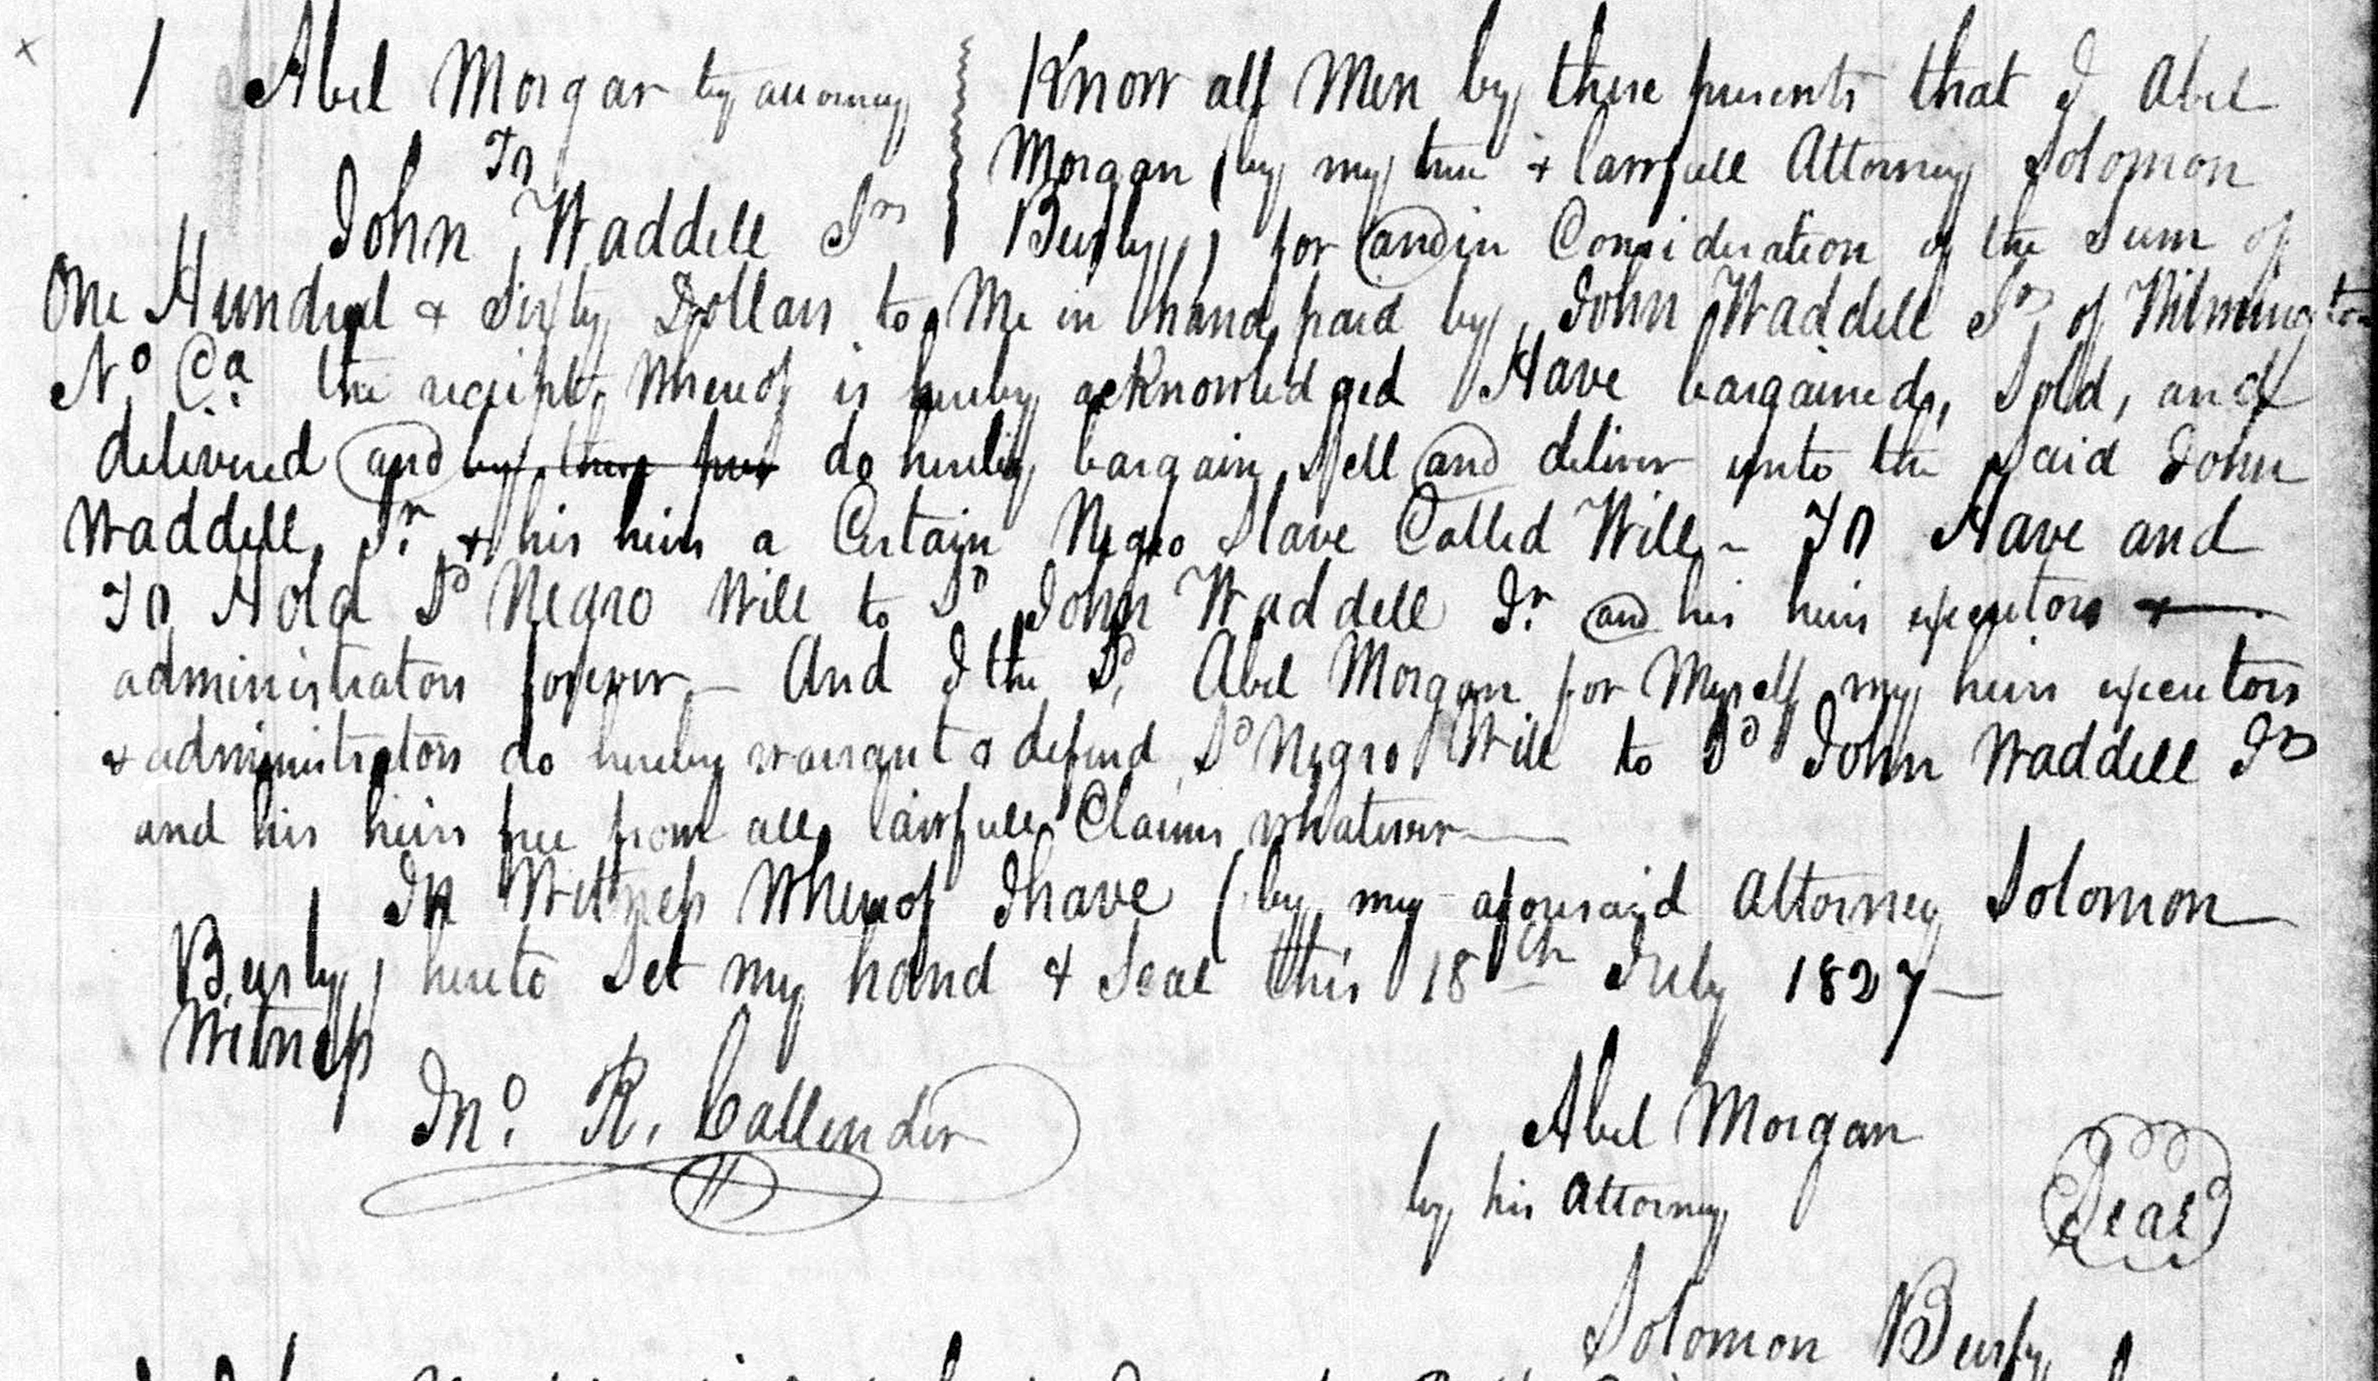 1 Abel Morgan by attorney
To
John Waddell Jr
Know all Men by these presents that I Abel
Morgan (by my true & lawfull Attorney Solomon
Busby,) for and in Consideration of the Sum of
One Hundred & Sixty Dollars to Me in hand paid by John Waddell Jr of Wilmington
No Ca. the receipt Whereof is hereby acknowledged Have bargained, Sold, and
delivered and by these pres do hereby bargain, Sell and deliver unto the Said John
Waddell Jr. & his heirs a Certain Negro Slave Called Will - To Have and
To Hold Sd Negro Will to Sd John Waddell Jr. and his heirs executors &
administrators forever - And I the Sd Abel Morgan for Myself my heirs executors
& administrators do hereby warrant & defend Sd Negro Will to Sd John Waddell Jr
and his heirs free from all lawfull Claims whatever
In Witness Whereof I have (by my aforesaid Attorney Solomon
Busby) hereto Set my hand & Seal this 18th July 1827
Witness
Jno. R. Callender
Abel Morgan
by his Attorney
Seal
Solomon Busby